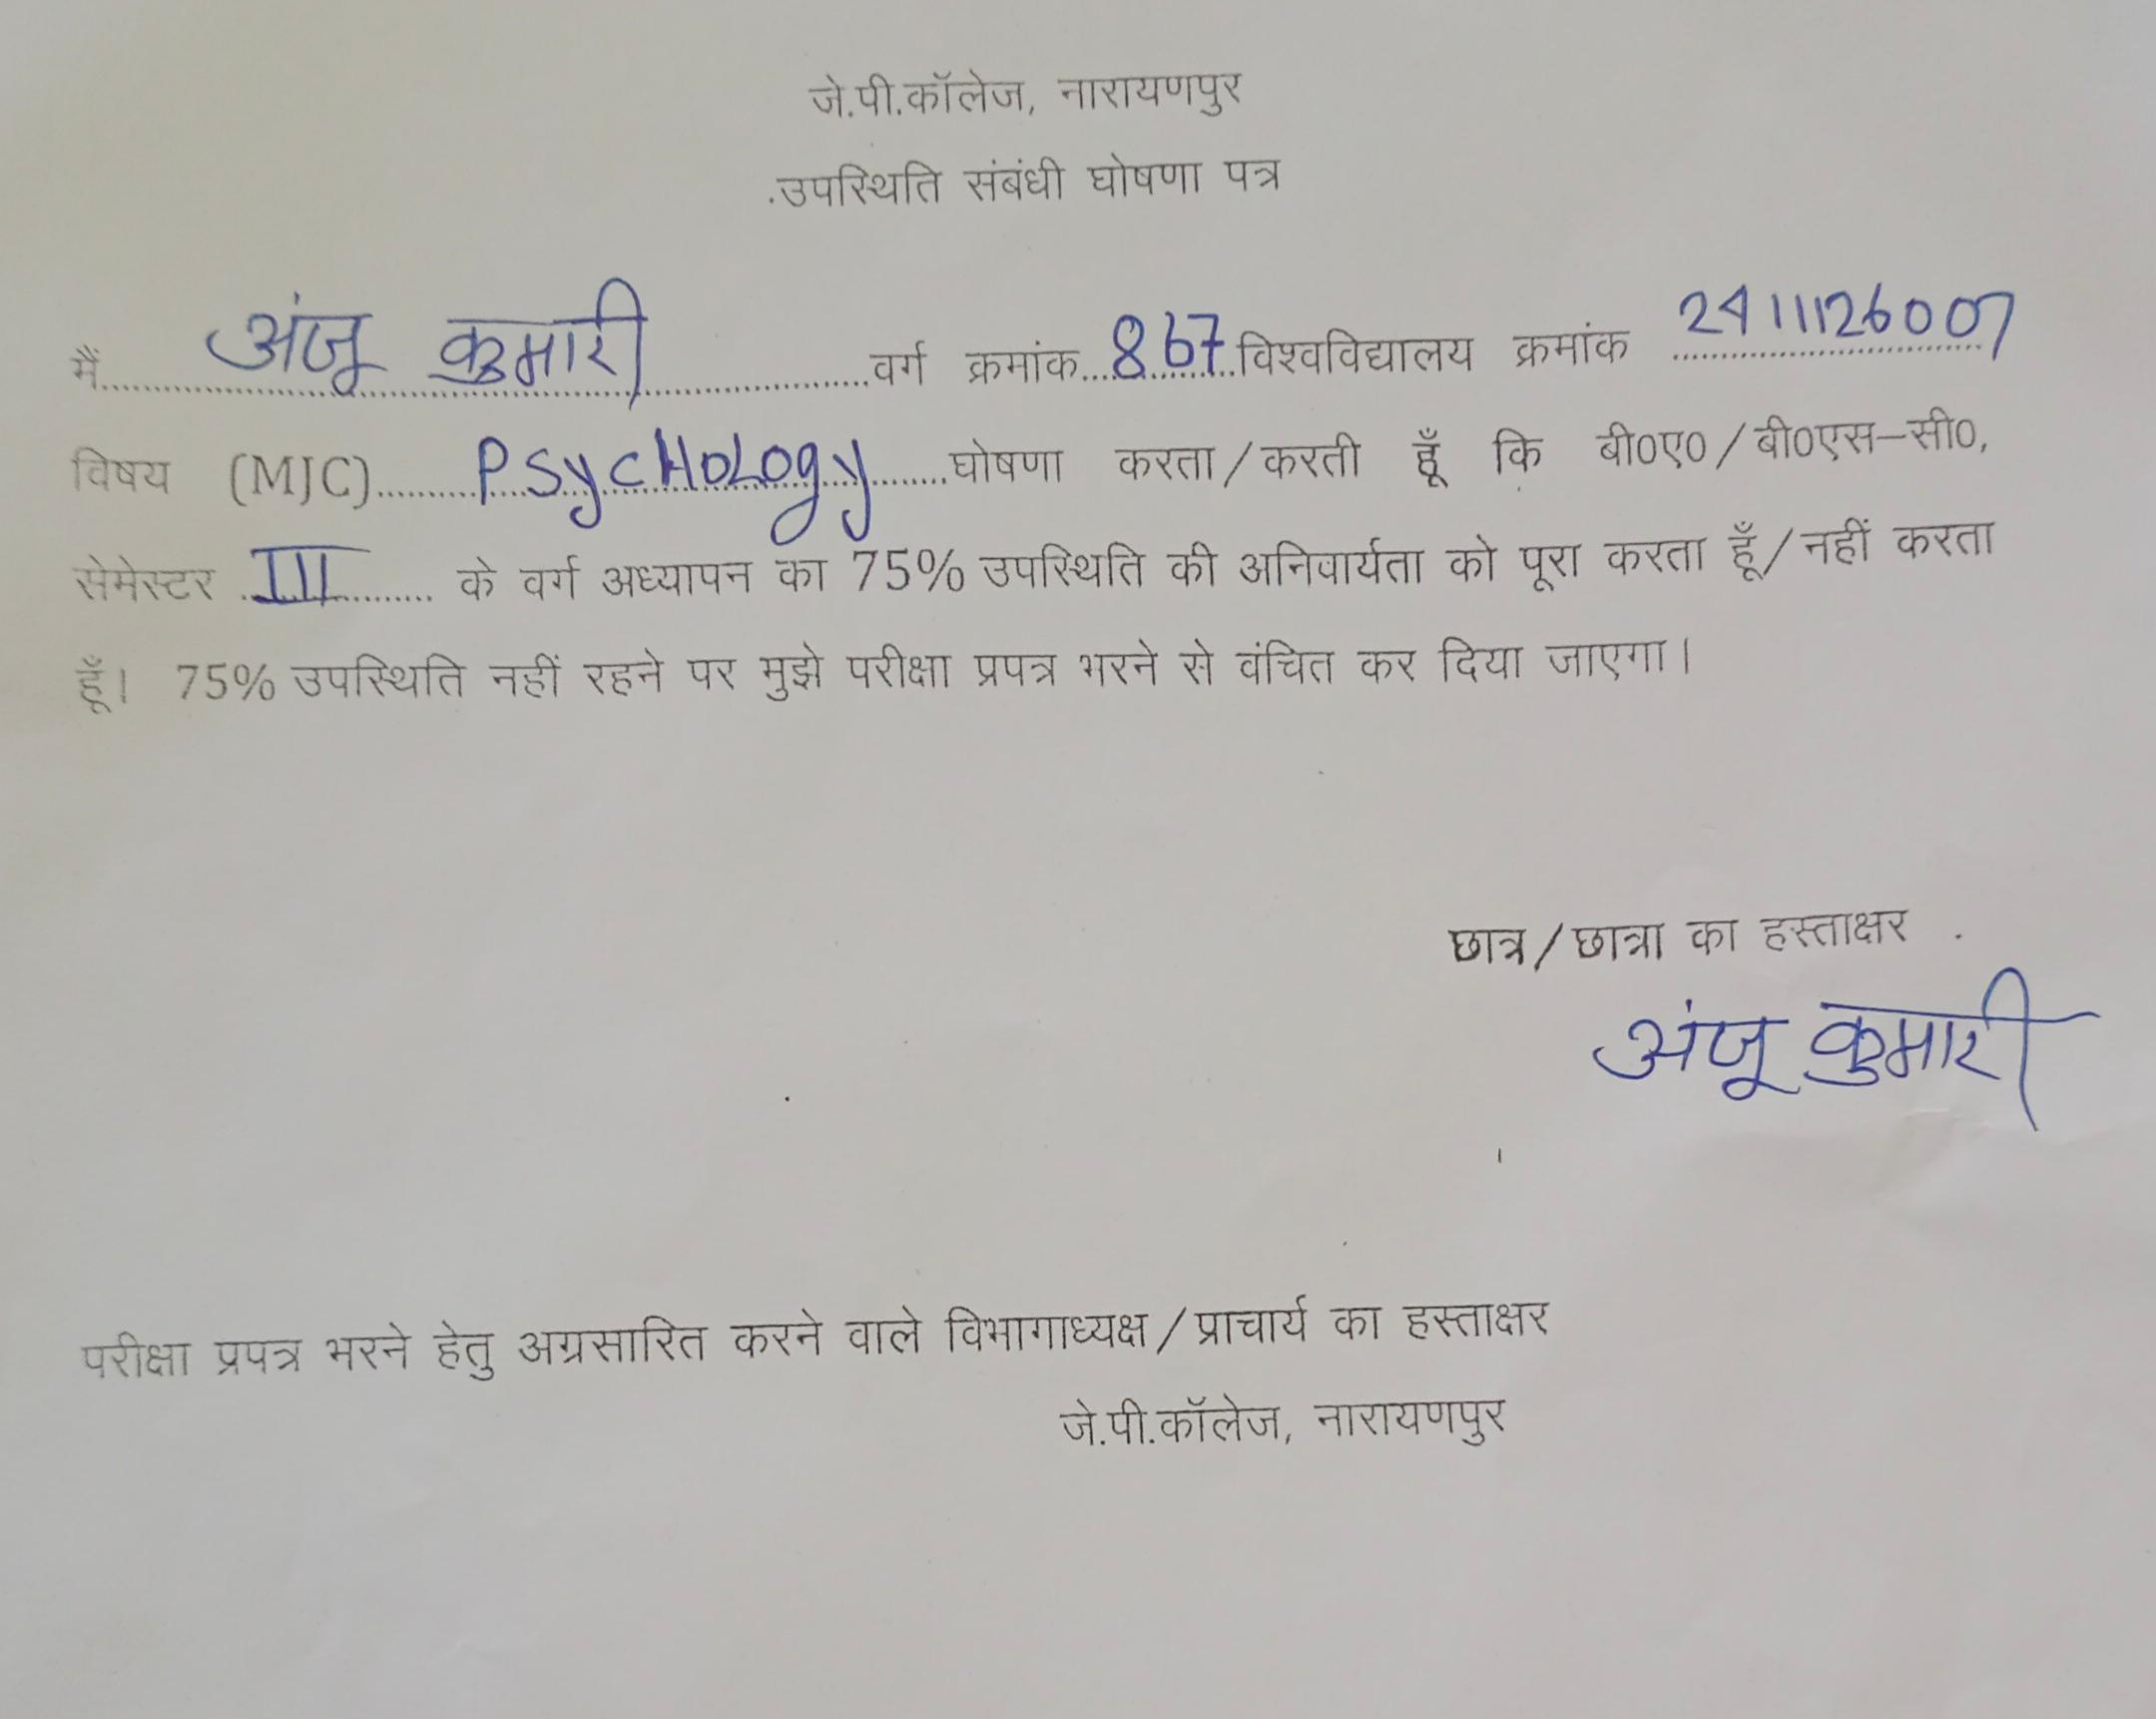 जे.पी.कॉलेज, नारायणपुर
उपस्थिति संबंधी घोषणा पत्र
मैं........अंजू कुमारी........वर्ग क्रमांक...867...विश्वविद्यालय क्रमांक 2411126007
विषय (MJC)........PSycHoLogy........घोषणा करता/करती हूँ कि बी०ए०/बी०एस–सी०,
सेमेस्टर ...III........ के वर्ग अध्यापन का 75% उपस्थिति की अनिवार्यता को पूरा करता हूँ/नहीं करता
हूँ। 75% उपस्थिति नहीं रहने पर मुझे परीक्षा प्रपत्र भरने से वंचित कर दिया जाएगा।
छात्र/छात्रा का हस्ताक्षर
अंजू कुमारी
परीक्षा प्रपत्र भरने हेतु अग्रसारित करने वाले विभागाध्यक्ष/प्राचार्य का हस्ताक्षर
जे.पी.कॉलेज, नारायणपुर